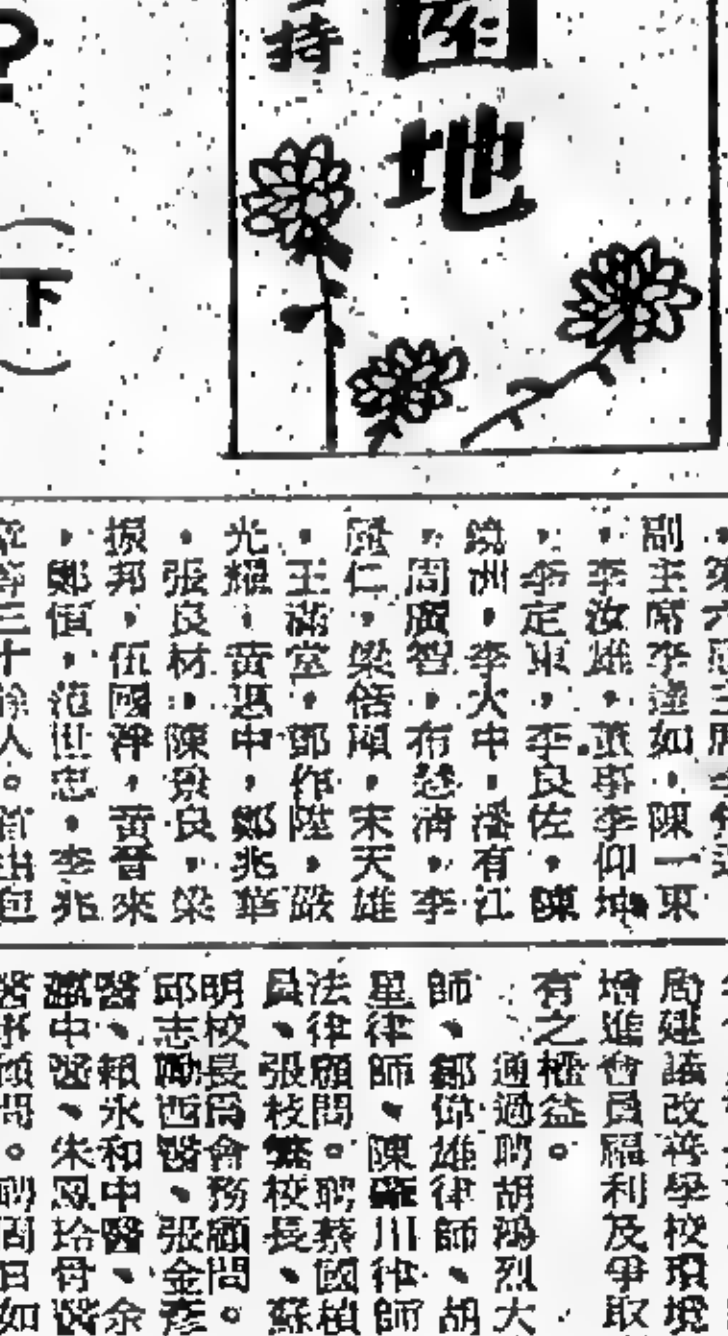 園
地
持
?
(下)
副主席李達如，陳一東
，李汝雄，董事李仰坤
，李定東，李良佐，陳
鏡洲，李大中，潘有江
，周廣智，布楚清，李
仁，梁倍頑，宋天雄
，王滿堂，鄧作陞，嚴
光耀，黃惠中，鄭兆華
，張良材，陳景良，梁
振邦，伍國淨，黃晉來
，鄭恒，范世忠，李兆
等三十餘人。
周建議改善學校環境
增進會員福利及爭取
有之權益。
通過聘胡鴻烈大
師、鄒偉雄律師、胡
星律師、陳羅川律師
法律顧問。聘蔡國楨
員、張枝繁校長、蘇
明校長爲會務顧問。
邱志勵西醫、張金彥
醫、賴永和中醫、余
中醫、朱鳳玲骨醫
顧問。聘周日如